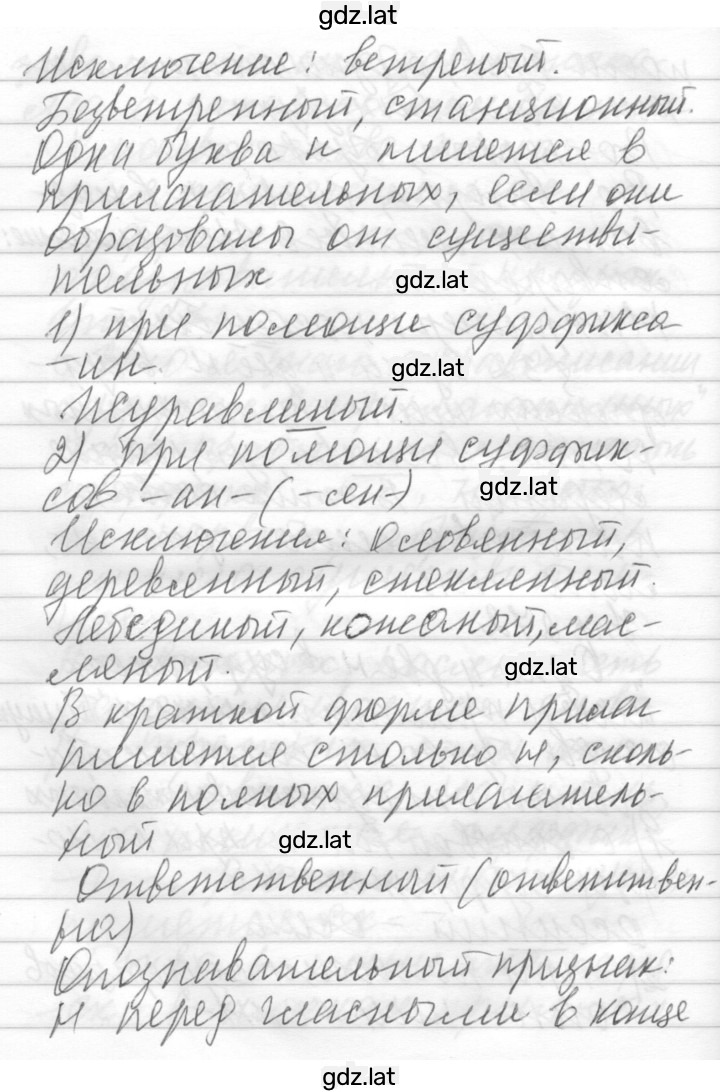 gdz.lat
Исключение: ветреный.
Безветренный, станционный.
Одна буква н пишется в
прилагательных, если они
образованы от существи-
тельных
gdz.lat
1) при помощи суффикса
-ин.
gdz.lat
Журавлиный.
2) при помощи суффик-
сов -ан- (-ян-)
gdz.lat
Исключения: Оловянный,
деревянный, стеклянный.
Лебединый, кожаный, мас-
ляный.
gdz.lat
В краткой форме прилаг
пишется столько н, сколь-
ко в полных прилагатель-
ный
gdz.lat
Ответственный (ответствен-
на)
Опознавательный признак:
н перед гласными в конце
gdz.lat